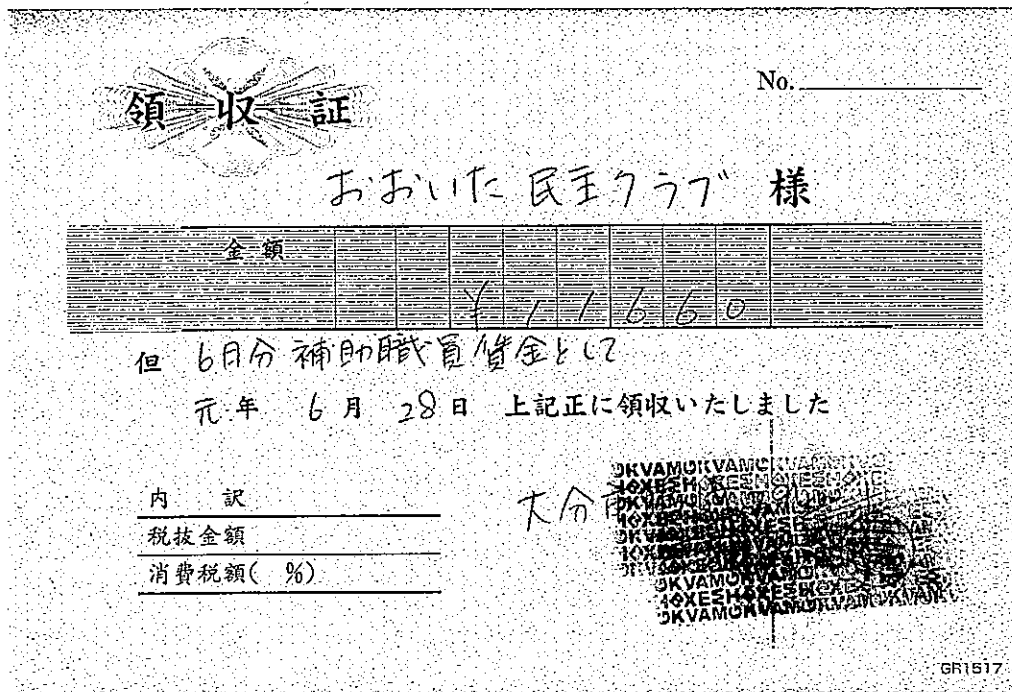 領収証
No.
おおいた民主クラブ 様
金額
¥11660
但 6月分補助職員賃金として
元年 6月 28日 上記正に領収いたしました
内 訳
税抜金額
消費税額( %)
大分市
GR1517